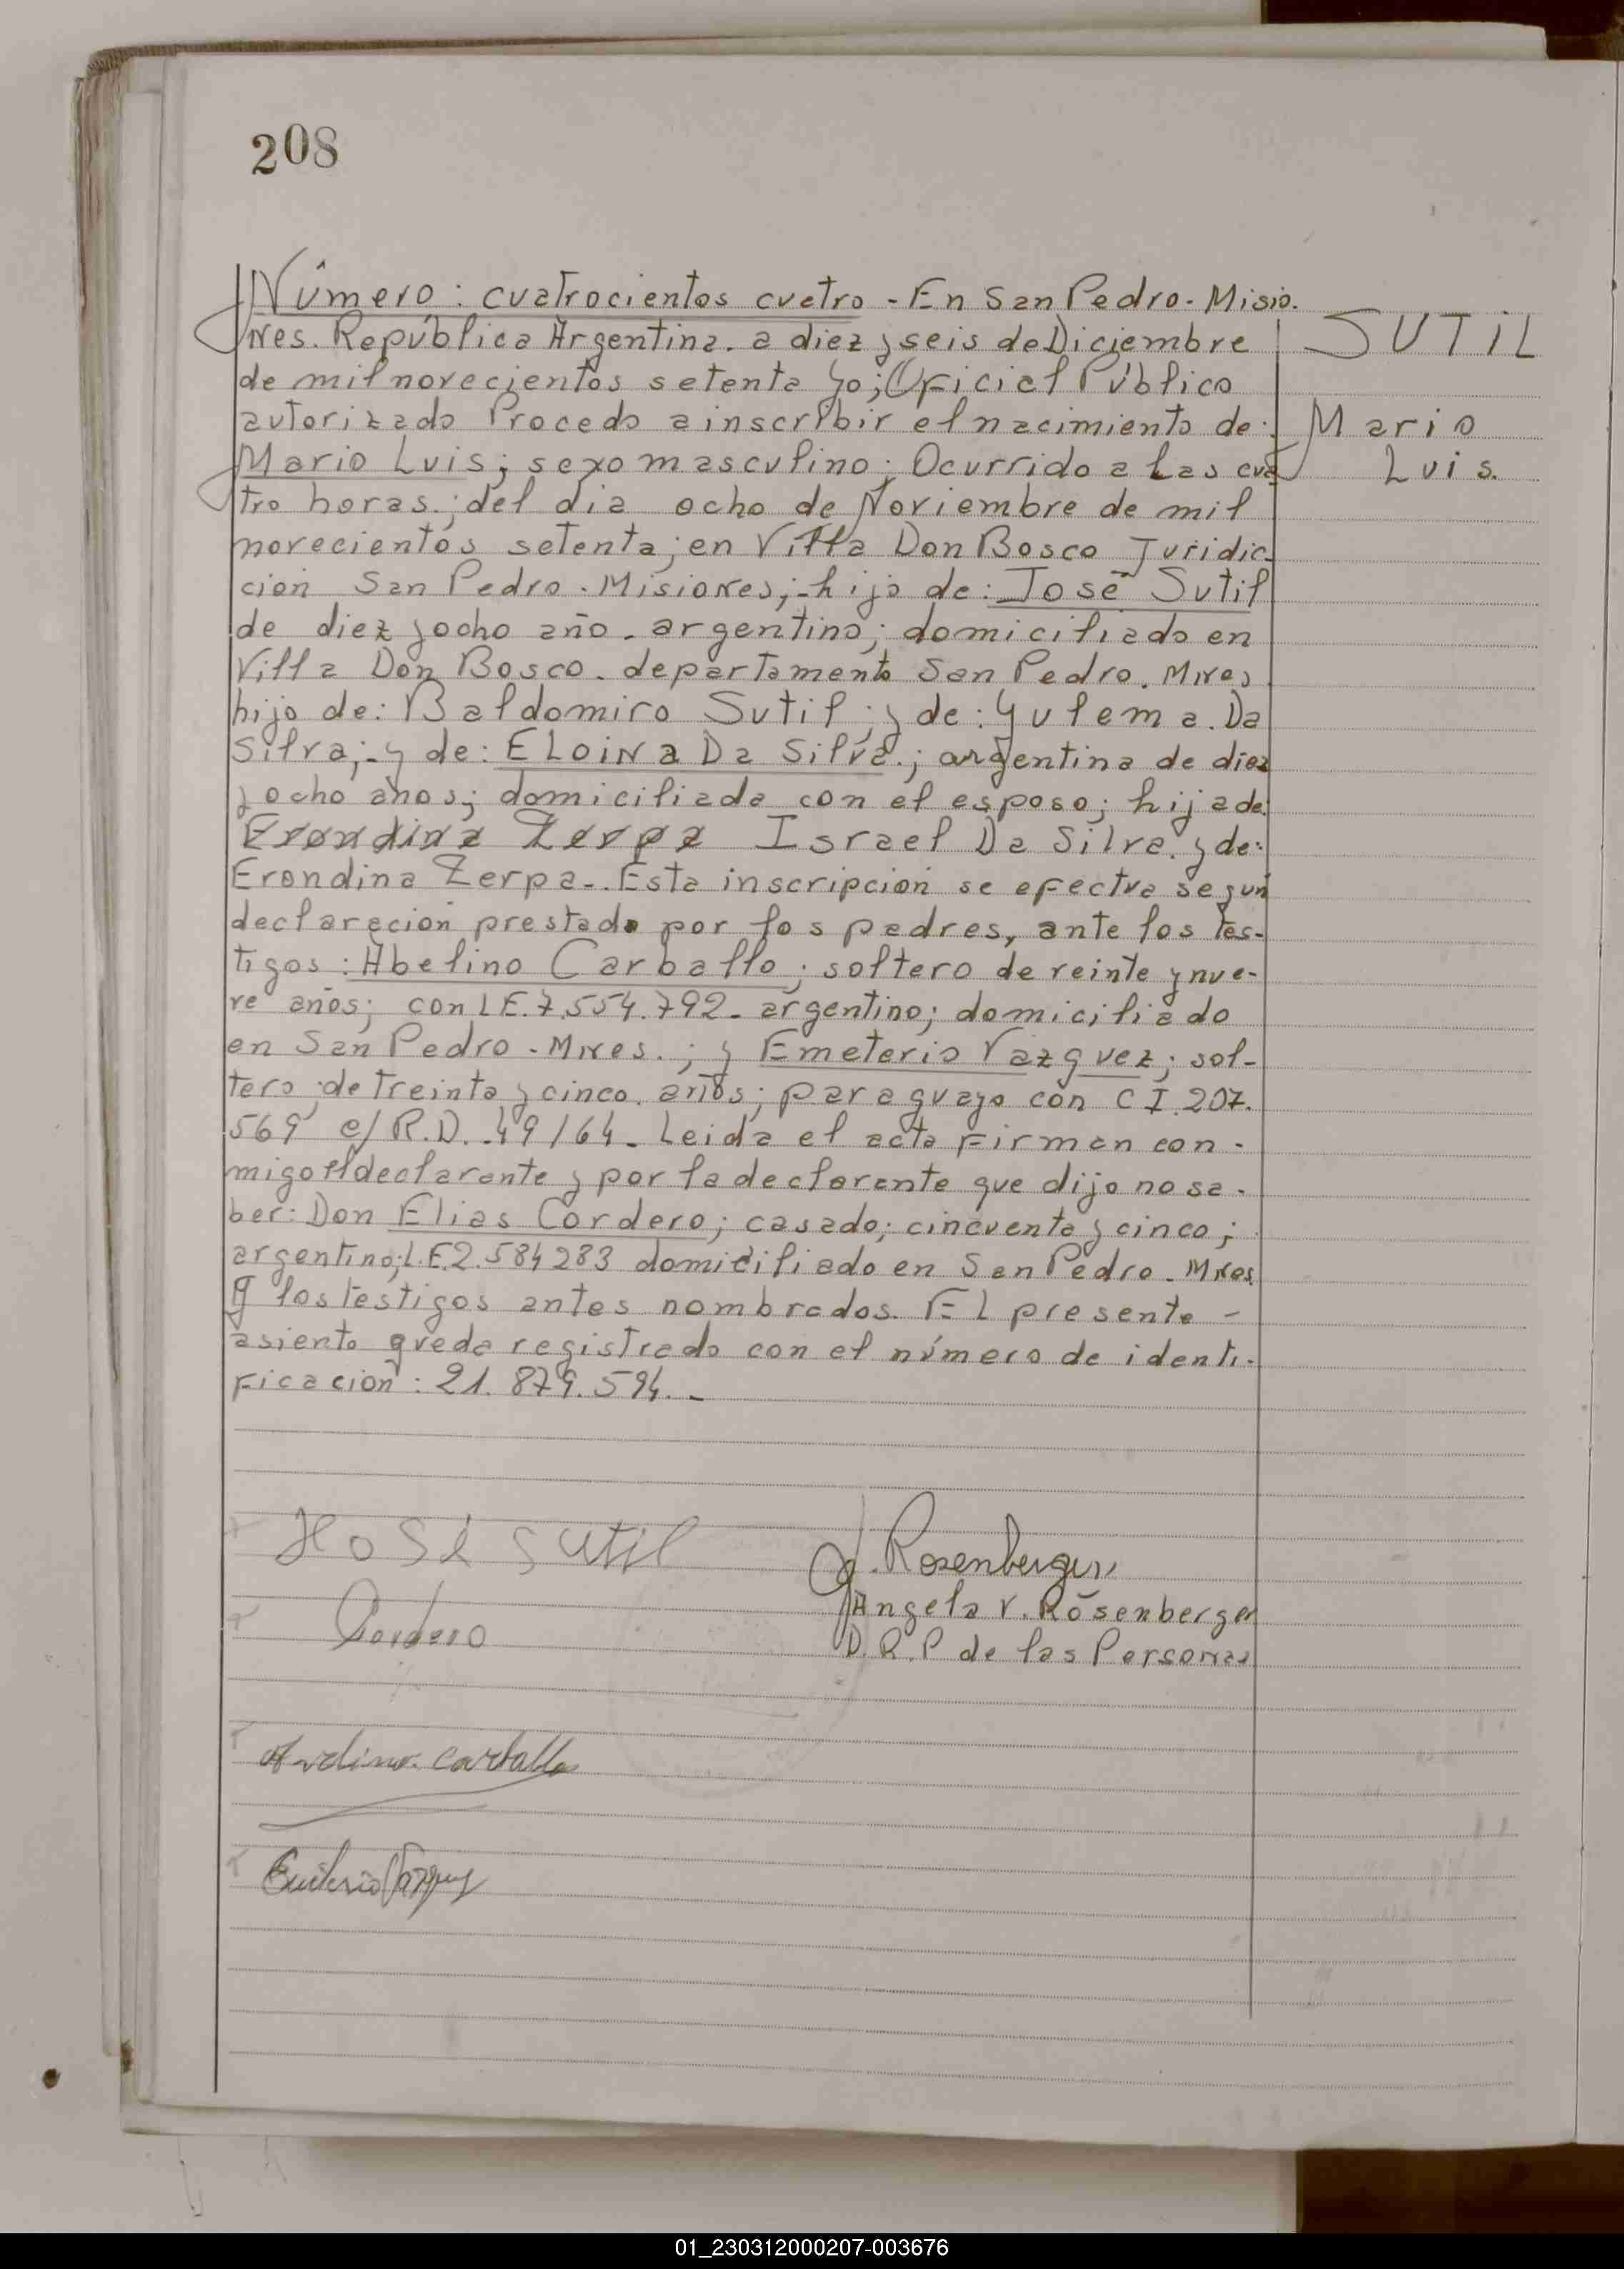 208
Número: cuatrocientos cuatro - En San Pedro - Misio.
nes. República Argentina. a diez y seis de Diciembre
SUTIL
de mil novecientos setenta yo; Oficial Público
autorizado Procedo a inscribir el nacimiento de:
Mario
Mario Luis; sexo masculino; Ocurrido a las cua
Luis.
tro horas; del dia ocho de Noviembre de mil
novecientos setenta; en Villa Don Bosco Juridic-
cion San Pedro - Misiones; - hijo de: José Sutil
de diez y ocho año - argentino; domiciliado en
Villa Don Bosco - departamento San Pedro. Mnes
hijo de: Baldomiro Sutil; y de: Yulema. Da
Silva; - y de: ELOINA Da Silva.; argentina de diez
y ocho años; domiciliada con el esposo; hija de:
Erondina Zerpa Israel Da Silva. y de:
Erondina Zerpa-. Esta inscripción se efectua segun
declaración prestado por los padres, ante los tes-
tigos: Abelino Carballo; soltero de veinte y nue-
ve años; con LE. 7.554.792 - argentino; domiciliado
en San Pedro - Mnes.; y Emeterio Vazquez; sol-
tero; de treinta y cinco años; paraguayo con C I. 207.
569 e/ R.D. - 49/64 - Leida el acta firman con -
migo el declarante y por la declarante que dijo no sa -
ber: Don Elias Cordero; casado; cincuenta y cinco;
argentino; L.E. 2.584283 domiciliado en San Pedro - Mnes
y los testigos antes nombrados. EL presente -
asiento queda registrado con el número de identi-
ficación: 21. 879. 594. -
José Sutil
J. Rosenberger
Angela V. Rosenberger
Cordero
D. R. P de las Personas
Avelino Carballo
Emeterio Vazquez
01_230312000207-003676